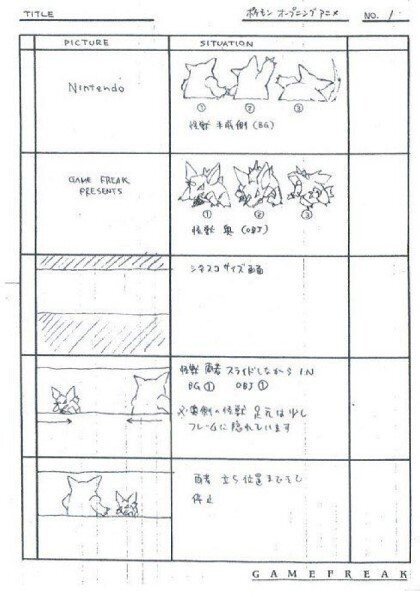 TITLE ポケモン オープニングアニメ NO. 1
PICTURE SITUATION
Nintendo
① ② ③
怪獣 手前側 (BG)
GAME FREAK
PRESENTS
① ② ③
怪獣 奥 (OBJ)
シネスコサイズ画面
怪獣 両者 スライドしながら IN
BG① OBJ①
足元は少し
フレームに隠れています
両者 立ち位置まできて
停止
GAMEFREAK